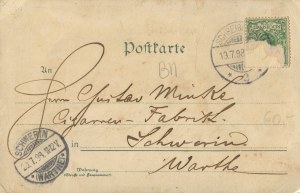 Postkarte
BN
An
Herrn Gustav Minke
Cigarren-Fabrik
Schwerin
Warthe
60,-
SCHWERIN
(WARTHE)
13.7.98
Wohnung
(Straße und Hausnummer)